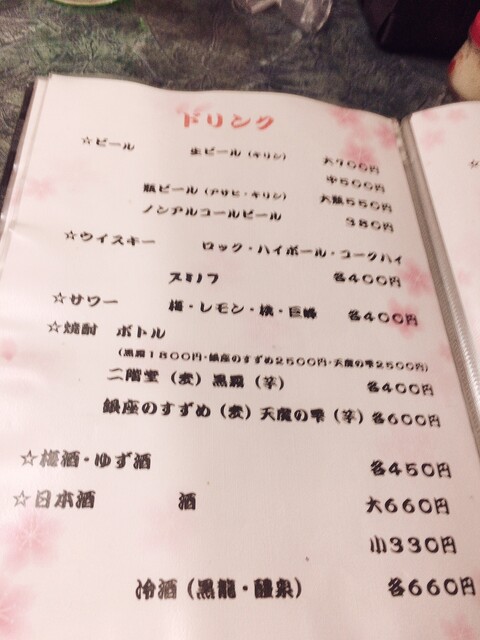 ドリンク
☆ビール 生ビール（キリン） 大700円
中500円
瓶ビール（アサヒ・キリン） 大瓶550円
ノンアルコールビール 350円
☆ウイスキー ロック・ハイボール・コークハイ
各400円
☆サワー 梅・レモン・桃・巨峰 各400円
☆焼酎 ボトル
（黒霧1800円・銀座のすずめ2500円・天魔の雫2500円）
二階堂（麦）黒霧（芋） 各400円
銀座のすずめ（麦）天魔の雫（芋）各600円
☆梅酒・ゆず酒 各450円
☆日本酒 酒 大660円
小330円
冷酒（黒龍・醴泉） 各660円